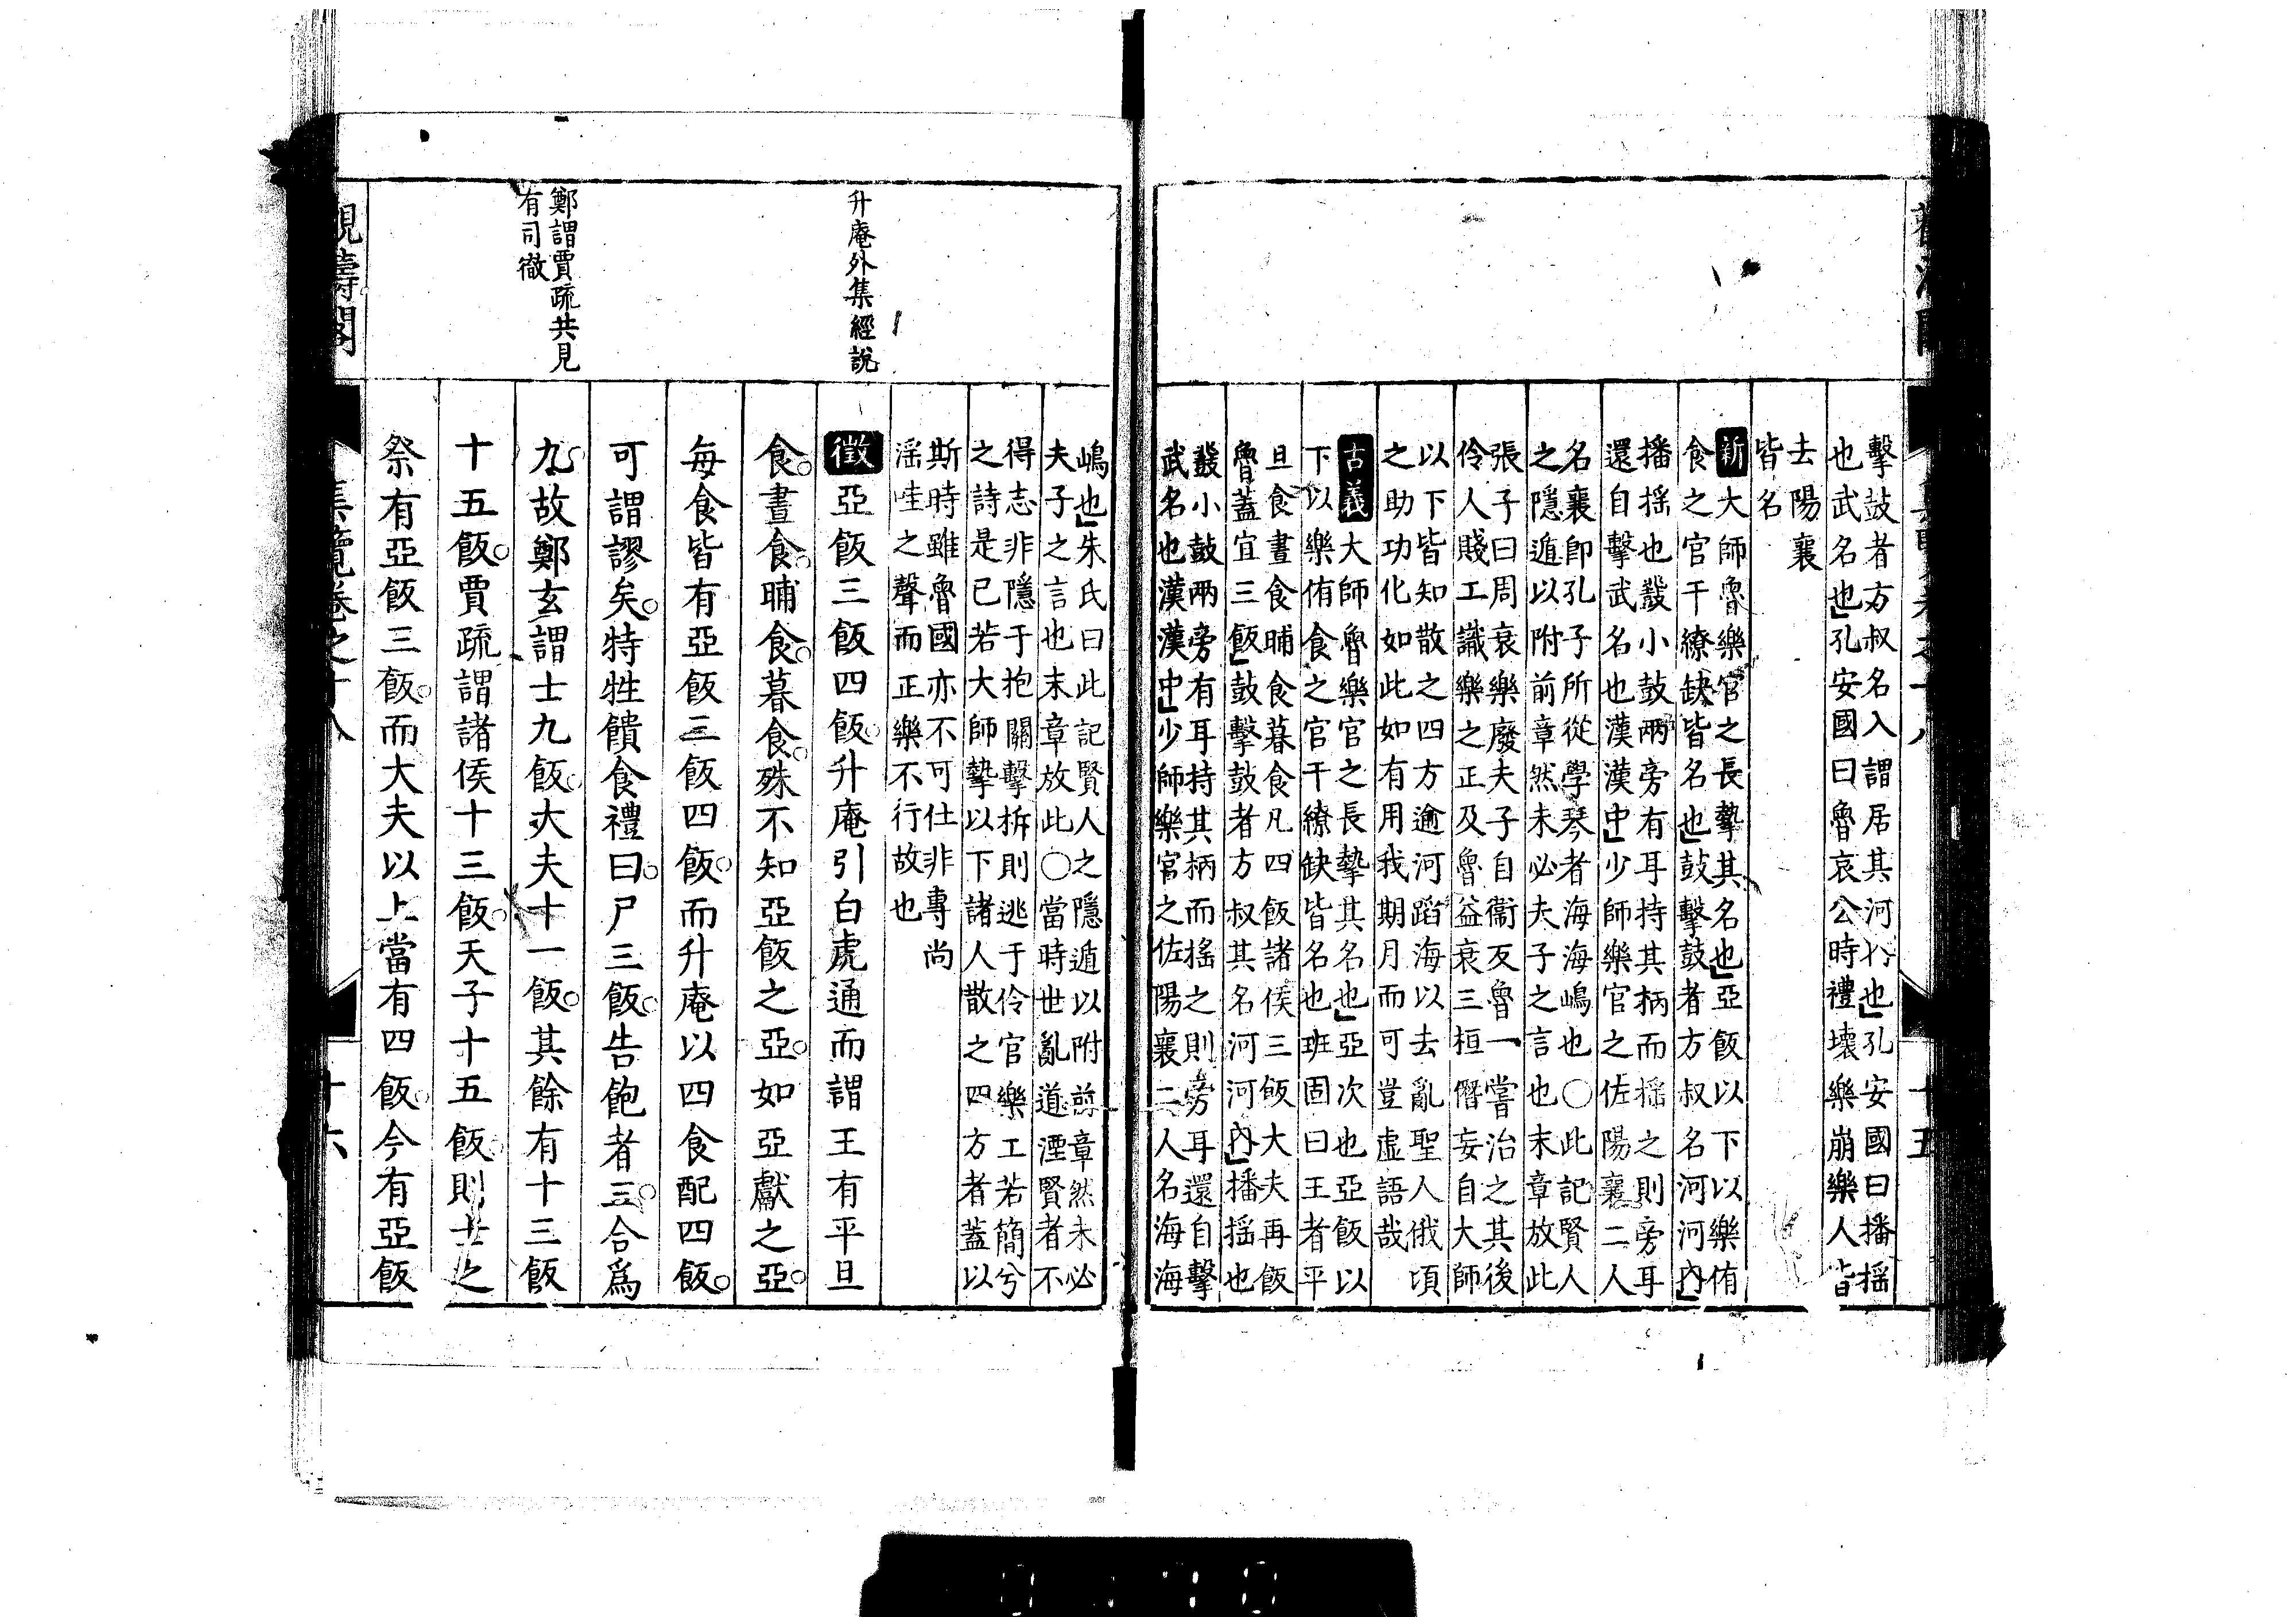 擊鼓者方叔名入謂居其河內也孔安國曰播搖
也武名也孔安國曰魯哀公時禮壞樂崩樂人皆
去陽襄
皆名
新大師魯樂官之長摯其名也亞飯以下以樂侑
食之官干繚缺皆名也鼓擊鼓者方叔名河河內
播搖也鼗小鼓兩旁有耳持其柄而搖之則旁耳
還自擊武名也漢漢中少師樂官之佐陽襄二人
名襄卽孔子所從學琴者海海嶋也○此記賢人
之隱遁以附前章然未必夫子之言也末章放此
張子曰周衰樂廢夫子自衞反魯一嘗治之其後
伶人賤工識樂之正及魯益衰三桓僭妄自大師
以下皆知散之四方逾河蹈海以去亂聖人俄頃
之助功化如此如有用我期月而可豈虛語哉
古義大師魯樂官之長摯其名也亞次也亞飯以
下以樂侑食之官干繚缺皆名也班固曰王者平
旦食晝食晡食暮食凡四飯諸侯三飯大夫再飯
魯蓋宜三飯鼓擊鼓者方叔其名河河內播搖也
鼗小鼓兩旁有耳持其柄而搖之則旁耳還自擊
武名也漢漢中少師樂官之佐陽襄二人名海海
嶋也朱氏曰此記賢人之隱遁以附前章然未必
夫子之言也末章放此○當時世亂道湮賢者不
得志非隱于抱關擊柝則逃于伶官樂工若簡兮
之詩是已若大師摯以下諸人散之四方者蓋以
斯時雖魯國亦不可仕非專尚
滛哇之聲而正樂不行故也
升庵外集經說
徵亞飯三飯四飯升庵引白虎通而謂王有平旦
食晝食晡食暮食殊不知亞飯之亞如亞獻之亞
每食皆有亞飯三飯四飯而升庵以四食配四飯
可謂謬矣特牲饋食禮曰尸三飯告飽者三合爲
鄭謂賈疏共見
有司徹
九故鄭玄謂士九飯大夫十一飯其餘有十三飯
十五飯賈疏謂諸侯十三飯天子十五飯則士之
祭有亞飯三飯而大夫以上當有四飯今有亞飯
集覽卷之十八
十六